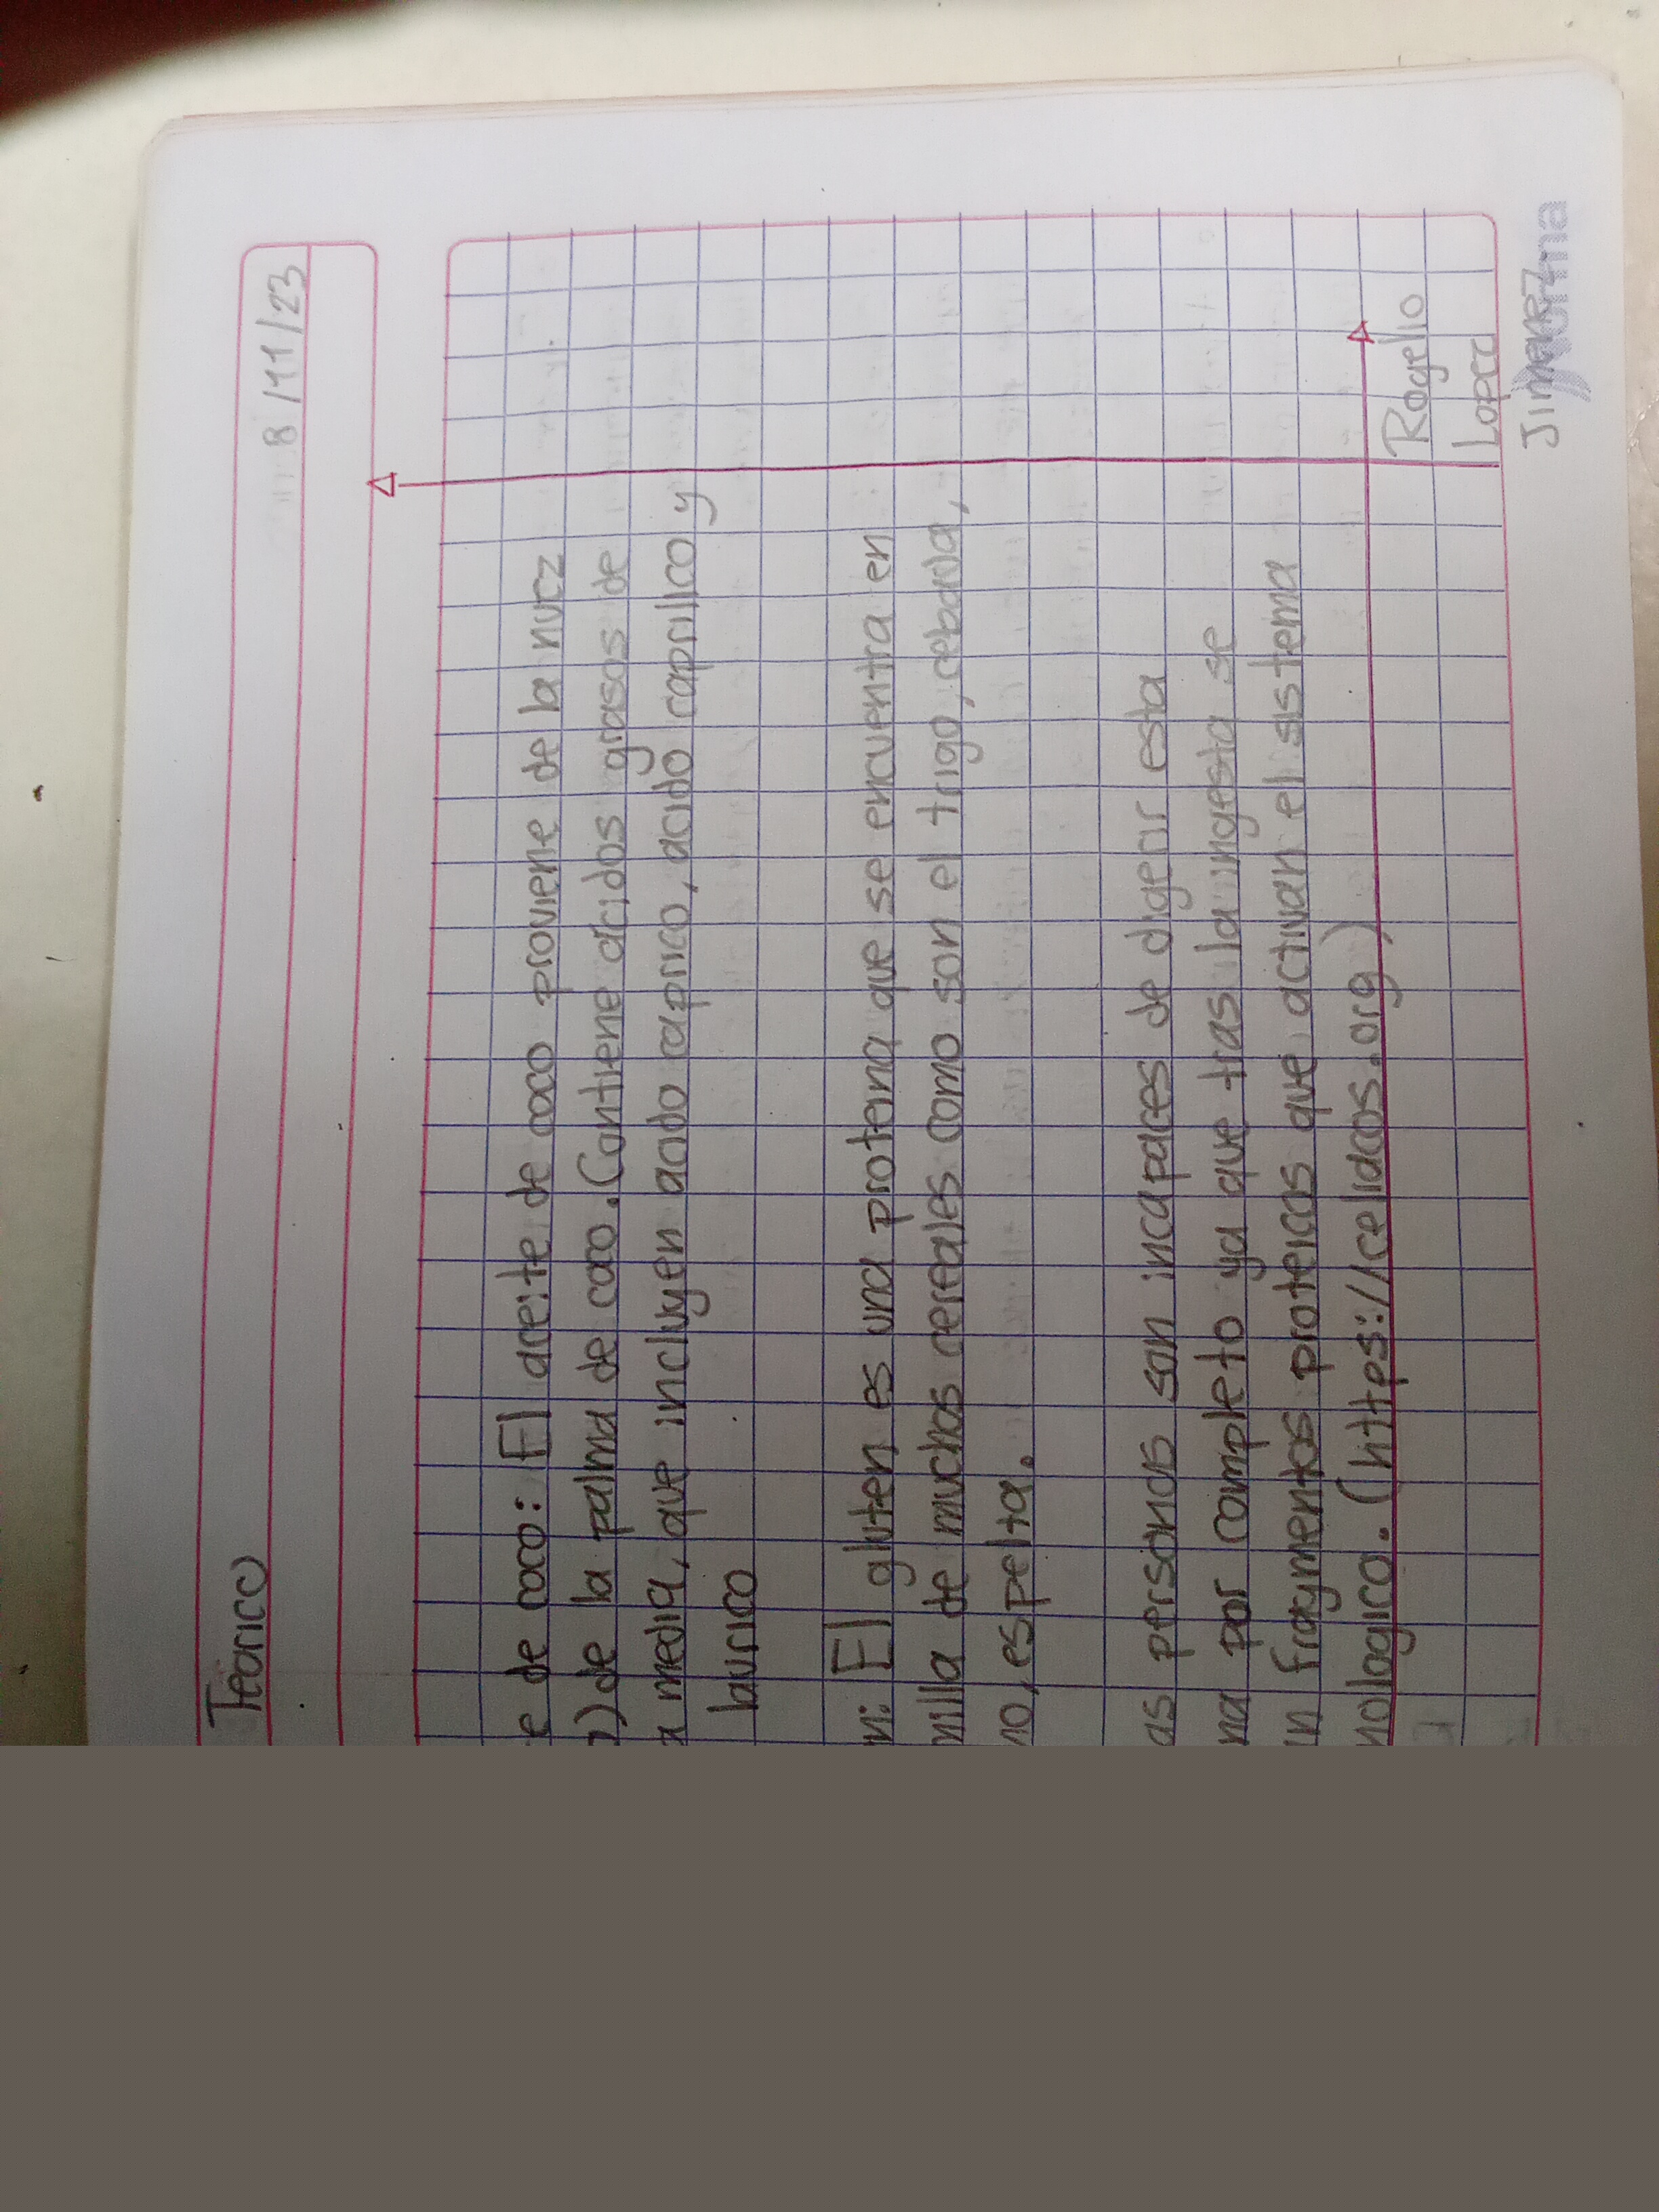 Teorico
8/11/23
e de coco: El aceite de coco proviene de la nuez
) de la palma de coco. Contiene acidos grasos de
a media, que incluyen acido caprico, acido caprilico y
laurico
n: El gluten es una proteina que se encuentra en
milla de muchos cereales como son el trigo, cebada,
no, espelta.
as personas son incapaces de digerir esta
na por completo ya que tras la ingesta se
n fragmentos proteicos que activan el sistema
nologico. (https://celiacos.org)
Rogelio
Lopez
Jimenez